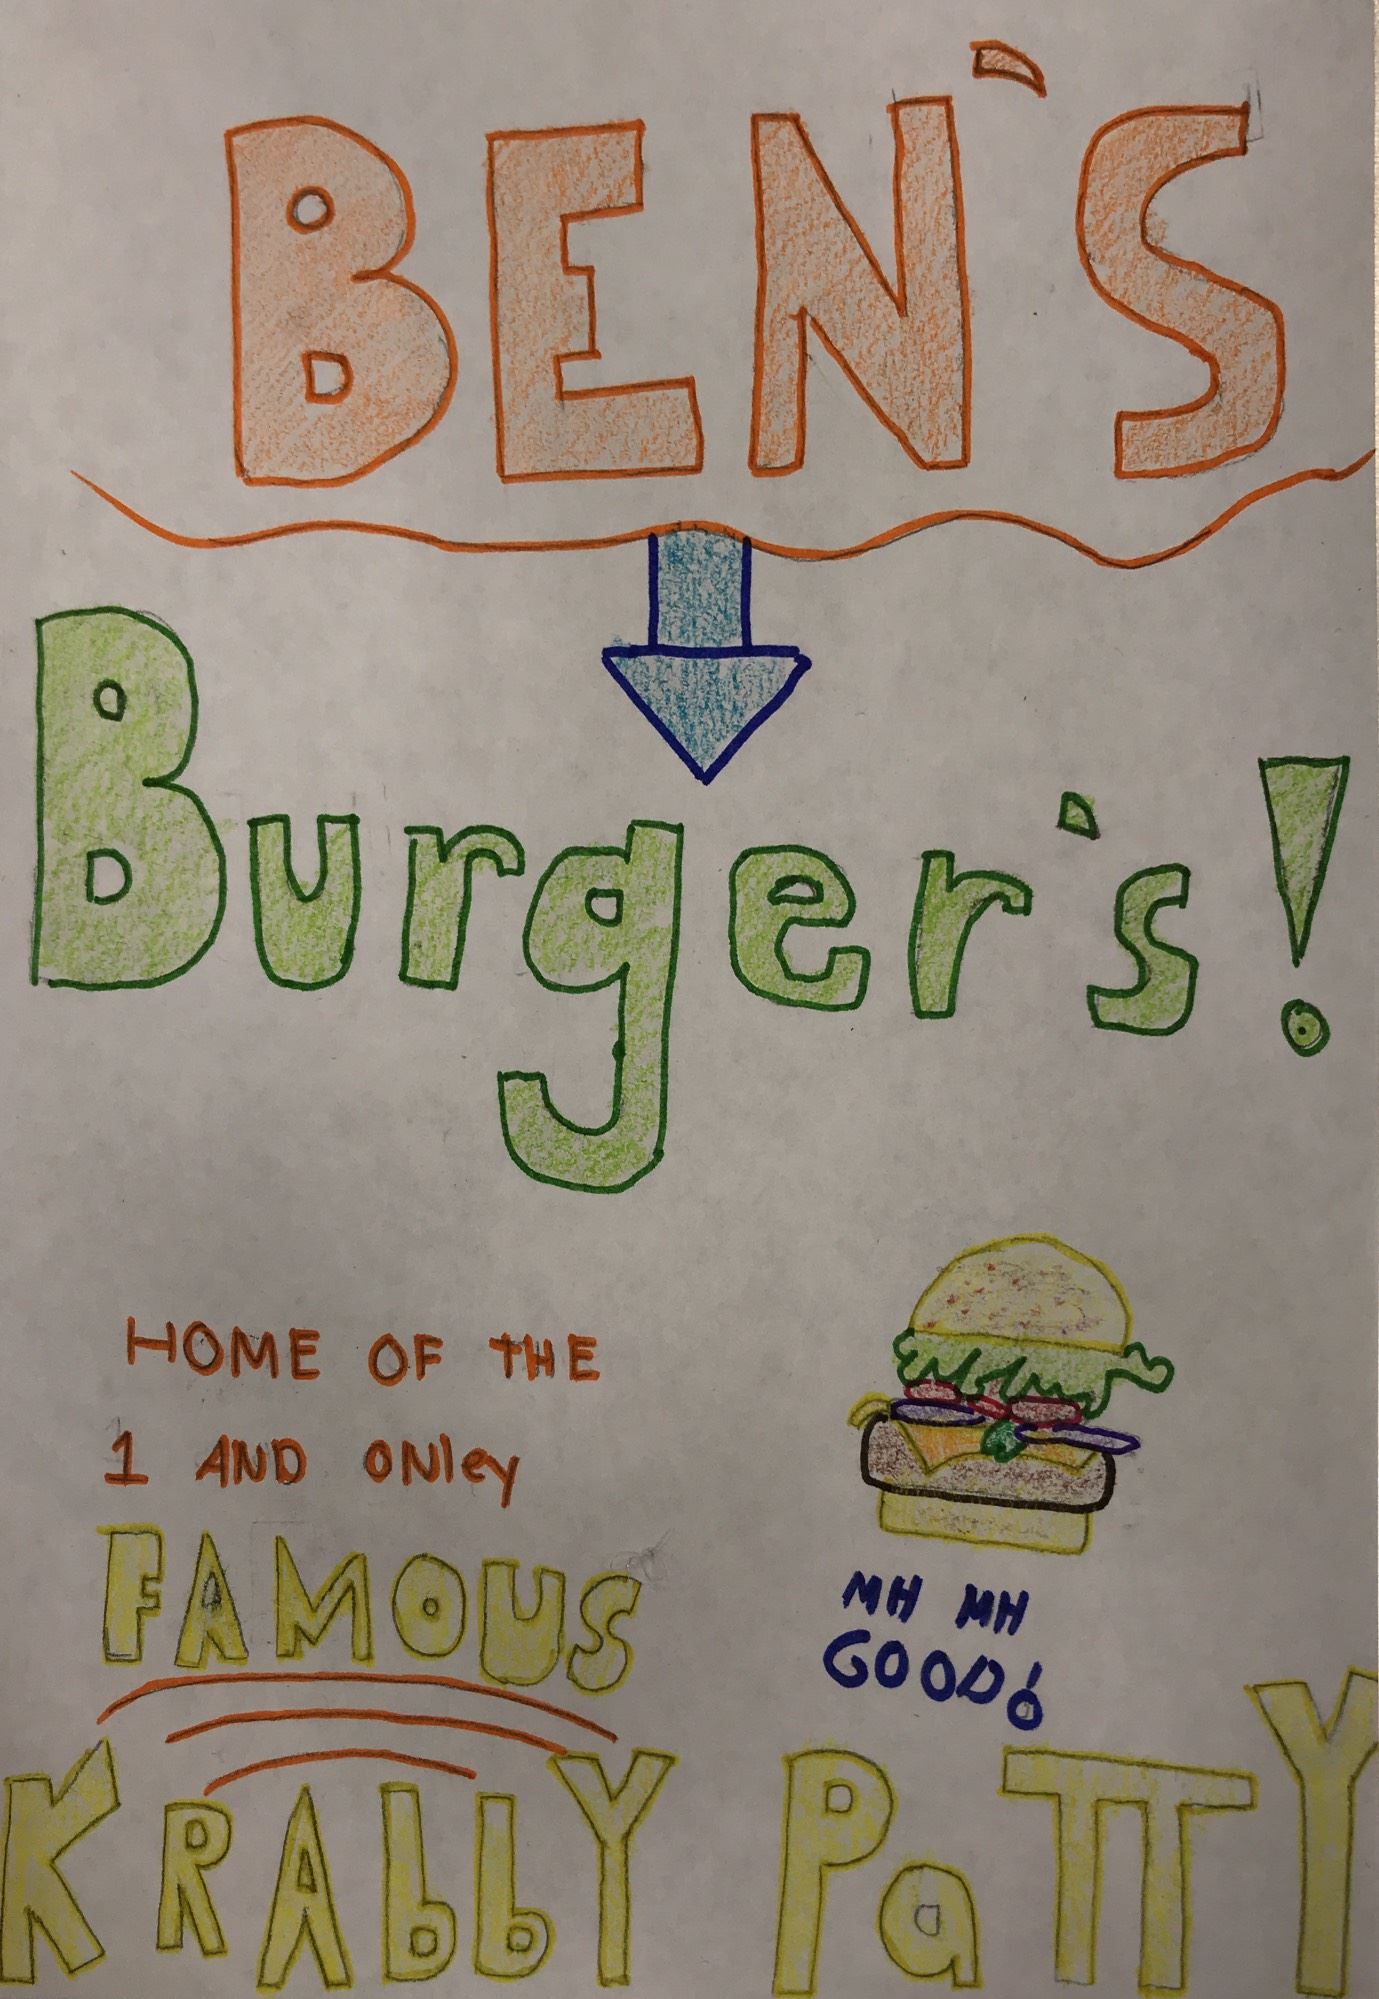 BEN'S
Burger's!
HOME OF THE
1 AND ONley
FAMOUS
MH MH
GOOD!
KRAbbY PaTTY